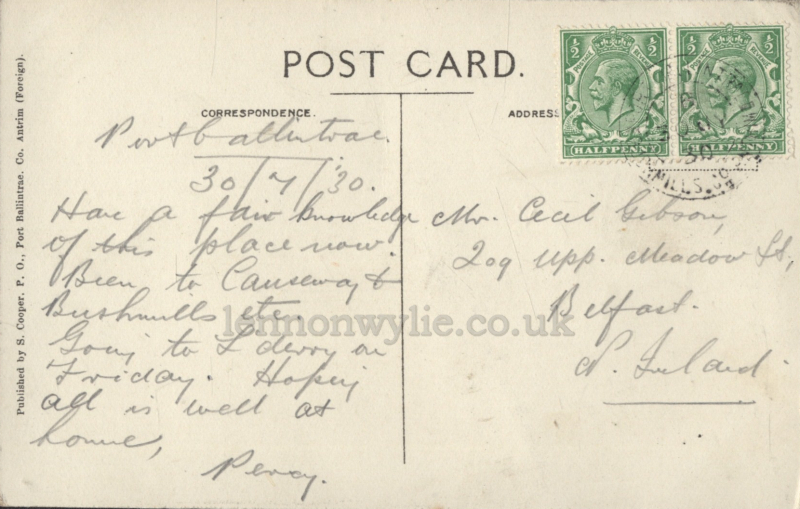 POST CARD.
CORRESPONDENCE.
ADDRESS
Portballintrae.
30/7/'30.
Have a fair knowledge
of this place now.
Been to Causeway &
Bushmills etc.
Going to L'derry on
Friday. Hoping
all is well at
home,
Percy.
Mr. Cecil Gibson,
209 Upp. Meadow St.,
Belfast.
N. Ireland.
½ ½
HALFPENNY
½ ½
HALFPENNY
MILLS.
Published by S. Cooper, P. O., Port Ballintrae. Co. Antrim (Foreign).
lennonwylie.co.uk